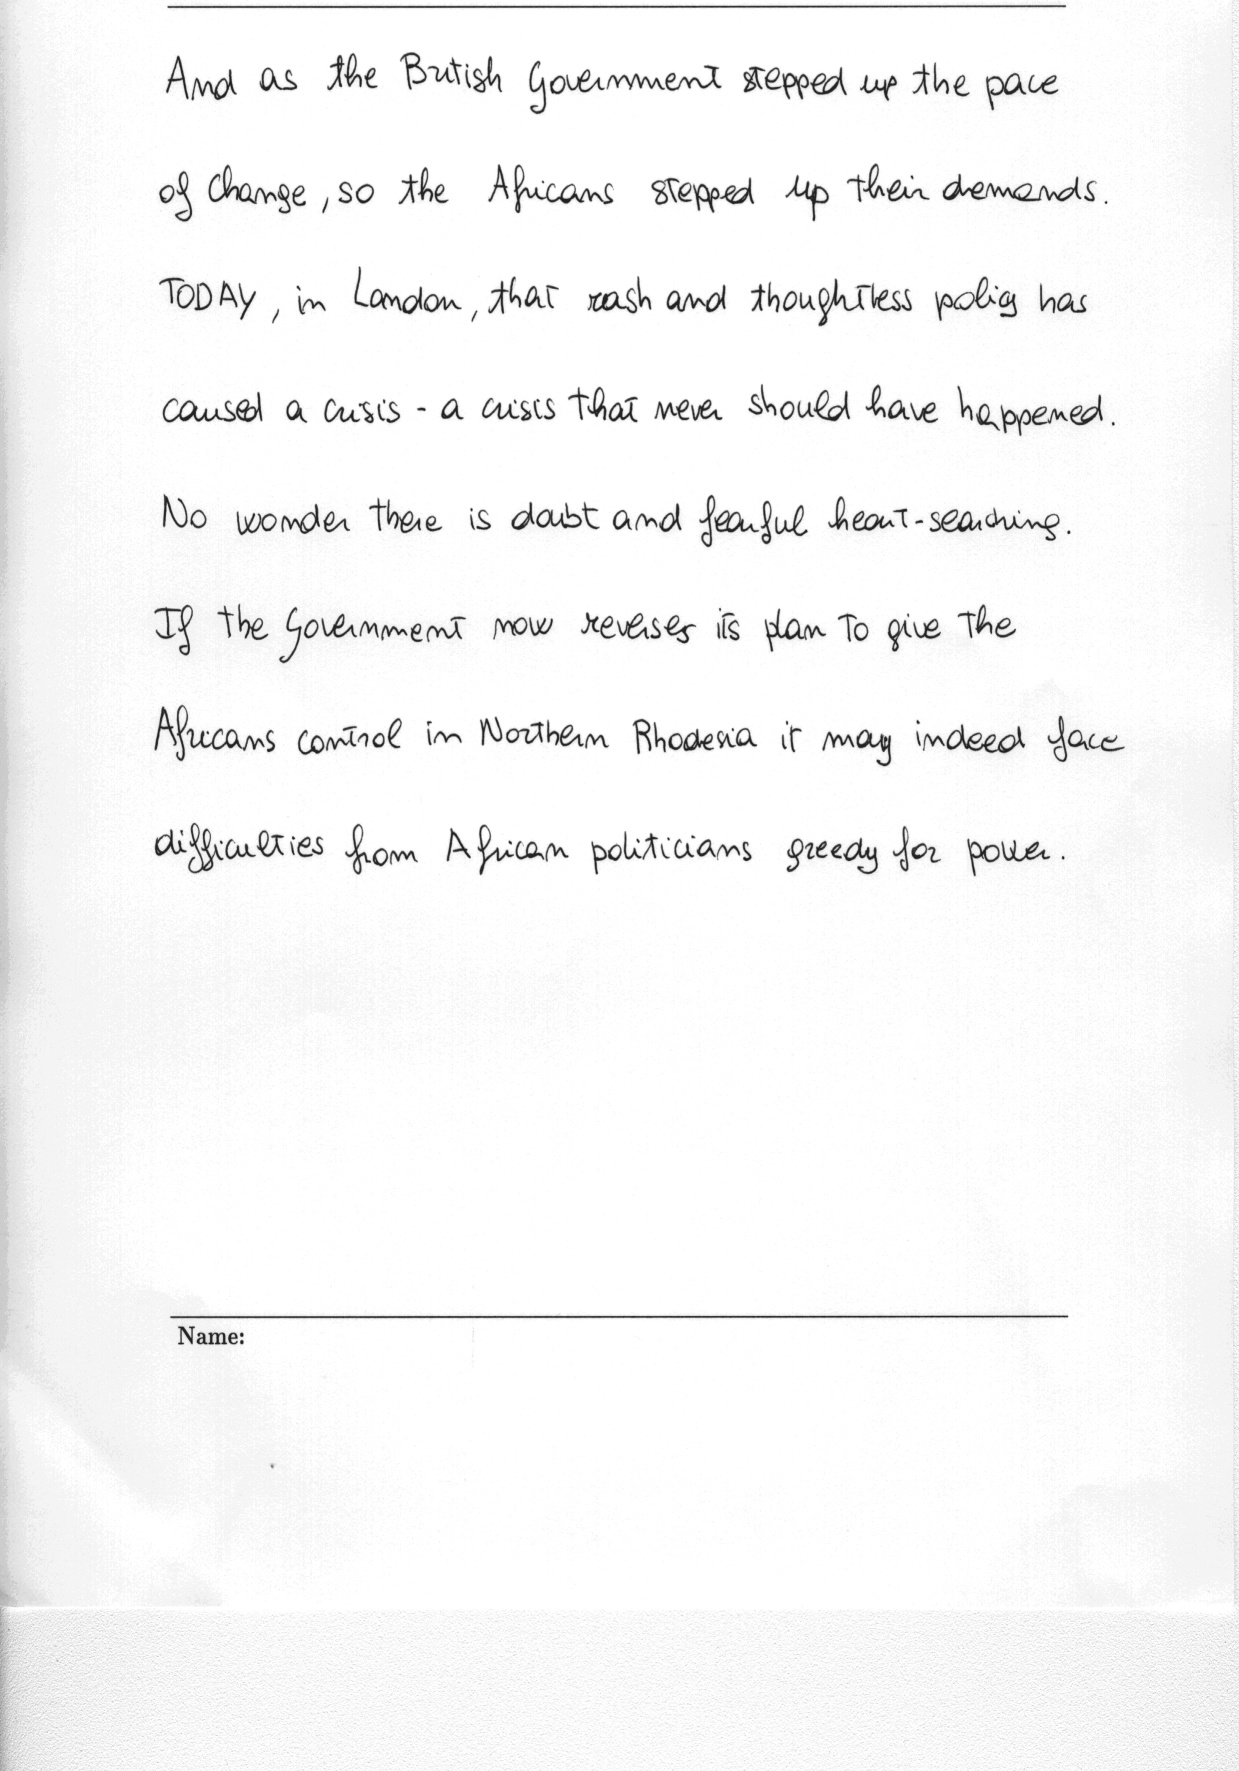 And as the British Government stepped up the pace
of change, so the Africans stepped up their demands.
TODAY, in London, that rash and thoughtless policy has
caused a crisis - a crisis that never should have happened.
No wonder there is doubt and fearful heart-searching.
If the Government now reverses its plan to give the
Africans control in Northern Rhodesia it may indeed face
difficulties from African politicians greedy for power.
Name: